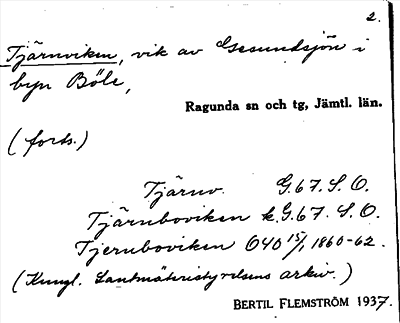 2.
Tjärnviken, vik av Gesundsjön i
byn Böle,
Ragunda sn och tg, Jämtl. län.
(forts.)
Tjärnv. G.67. S. O.
Tjärnboviken k.G.67. S. O.
Tjernboviken 040 15/1, 1860-62.
(Kungl. Lantmäteristyrelsens arkiv.)
BERTIL FLEMSTRÖM 1937.